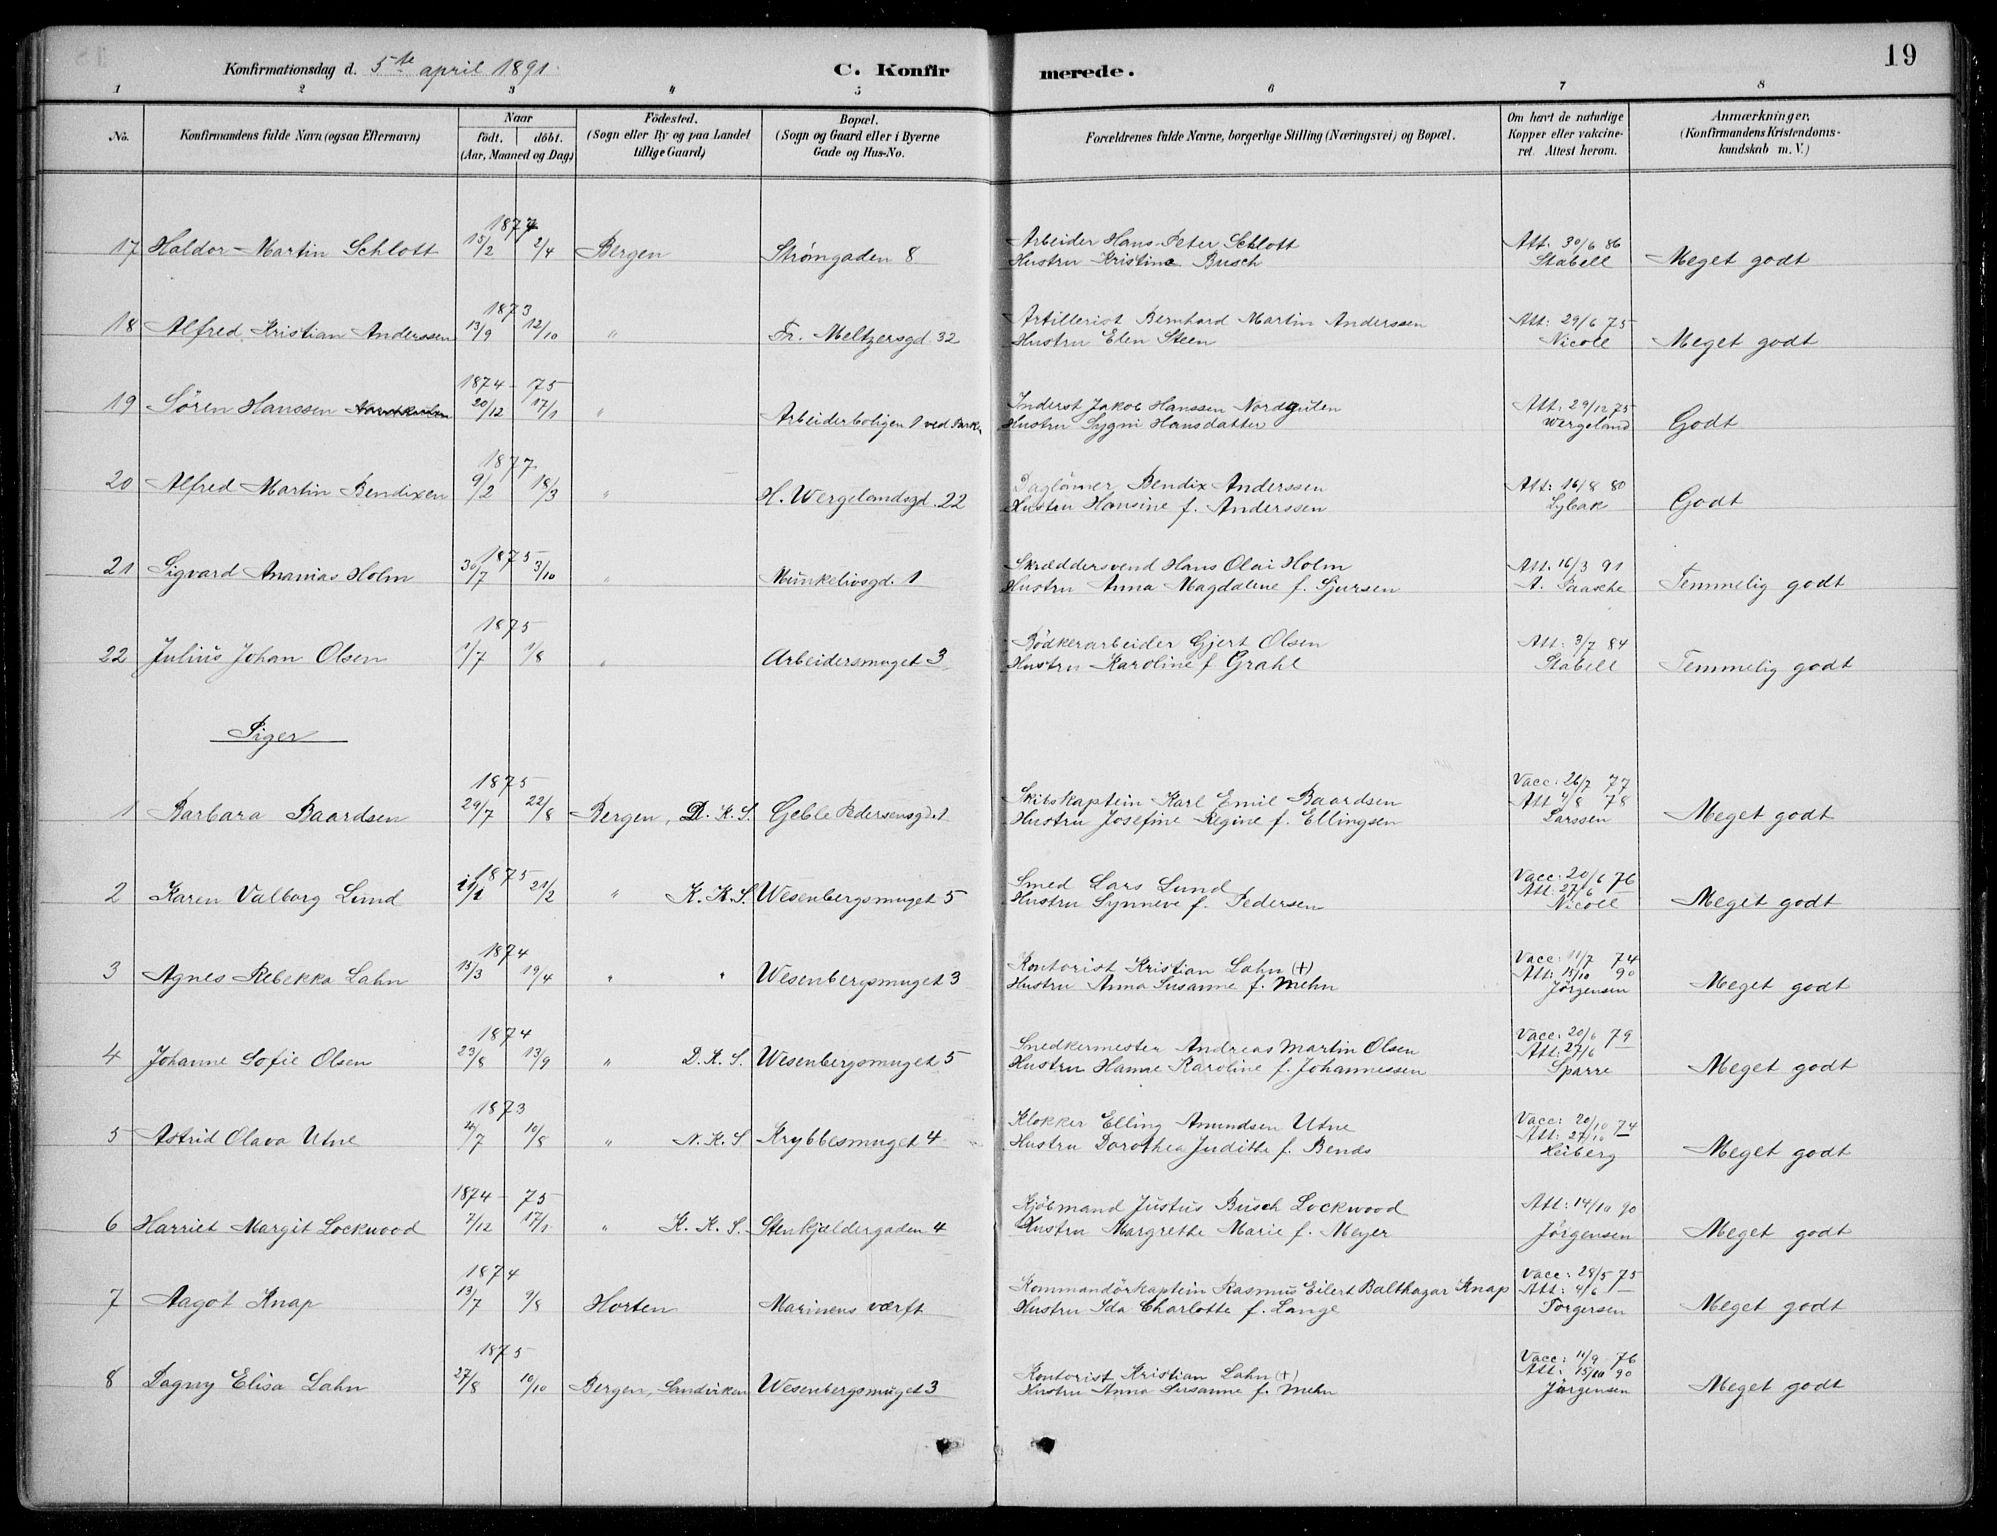 19
Konfirmationsdag d. 5te april 1891.
C. Konfirmerede.
1 2 3 4 5 6 7 8
No. Konfirmandens fulde Navn (ogsaa Efternavn) Naar født. døbt. (Aar, Maaned og Dag) Fødested. (Sogn eller By og paa Landet tillige Gaard) Bopæl. (Sogn og Gaard eller i Byerne Gade og Hus-No. Forældrenes fulde Navne, borgerlige Stilling (Næringsvei) og Bopæl. Om havt de naturlige Kopper eller vakcineret. Attest herom. Anmærkninger. (Konfirmandens Kristendomskundskab m. V.)
1877
17 Haldor Martin Schlott 15/2 2/4 Bergen Strømgaden 8 Arbeider Hans Peter Schlott Att: 30/6 86
Hustru Kristine Busch Stabell Meget godt
1873
18 Alfred Kristian Anderssen 13/9 12/10 " Fr. Meltzersgd. 32 Artillerist Bernhard Martin Anderssen Att: 29/6 75
Hustru Elen Steen Nicoll Meget godt
1874 - 75
19 Søren Hanssen 20/12 17/1 " Arbeiderboligen 1 ved Parken Inderst Jakob Hanssen Nordguten Att: 29/12 75
Hustru Sygni Hansdatter Wergeland Godt
1877
20 Alfred Martin Bendixen 9/2 18/3 " H. Wergelandsgd. 22 Daglønner Bendix Anderssen Att: 16/8 80
Hustru Hansine f. Anderssen Lybak Godt
1875
21 Sigvard Ananias Holm 30/7 3/10 " Munkelivsgd. 1 Skræddersvend Hans Olai Holm Att. 16/3 91
Hustru Anna Magdalene f. Sjursen A. Paasche Temmelig godt
1875
22 Julius Johan Olsen 1/7 1/8 " Arbeidersmuget 3 Bødkerarbeider Gjert Olsen Att: 3/7 84
Hustru Karoline f Grahl Stabell Temmelig godt
Piger
1875 Vacc: 26/7 77
1 Barbara Baardsen 29/7 22/8 Bergen, D. K. S. Geble Pedersensgd. 1 Skibskaptein Karl Emil Baardsen Att 4/8 78
Hustru Josefine Regine f. Ellingsen Larssen Meget godt
1875 Vacc: 20/6 76
2 Karen Valborg Lund 21/2 " K. K. S. Wesenbergsmuget 5 Smed Lars Lund Att: 27/6 —
Hustru Synneve f. Pedersen Nicoll Meget godt
1874 Vacc: 11/7 74
3 Agnes Rebekka Lahn 15/3 19/4 " " Wesenbergsmuget 3 Kontorist Kristian Lahn (+) Att: 15/10 90
Hustru Anna Susanne f. Mehn Jørgensen Meget godt
1874 Vacc: 20/6 79
4 Johanne Sofie Olsen 23/8 13/9 " D. K. S. Wesenbergsmuget 5 Snedkermester Andreas Martin Olsen Att: 27/6
Hustru Hanne Karoline f. Johannessen Sparre Meget godt
1873 Vacc: 20/10 74
5 Astrid Olava Utne 4/7 10/8 " N. K. S. Krybbesmuget 4 Klokker Elling Amundsen Utne Att: 27/10 —
Hustru Dorothea Juditte f. Bends Heiberg Meget godt
1874 - 75
6 Harriet Margit Lockwood 7/12 17/1 " K. K. S. Stenkjeldergaden 4 Kjøbmand Justus Busch Lockwood Att: 14/10 90
Hustru Margrethe Marie f. Meyer Jørgensen Meget godt
1874 Vacc: 28/5 75
7 Aagot Knap 13/7 9/8 Horten Marinens værft Kommandørkaptein Rasmus Eilert Balthazar Knap Att: 4/6 —
Hustru Ida Charlotte f. Lange Torgersen Meget godt
1875 Vacc: 11/9 76
8 Dagny Elisa Lahn 27/8 10/10 Bergen, Sandviken Wesenbergsmuget 3 Kontorist Kristian Lahn (+) Att: 15/10 90
Hustru Anna Susanne f. Mehn Jørgensen Meget godt